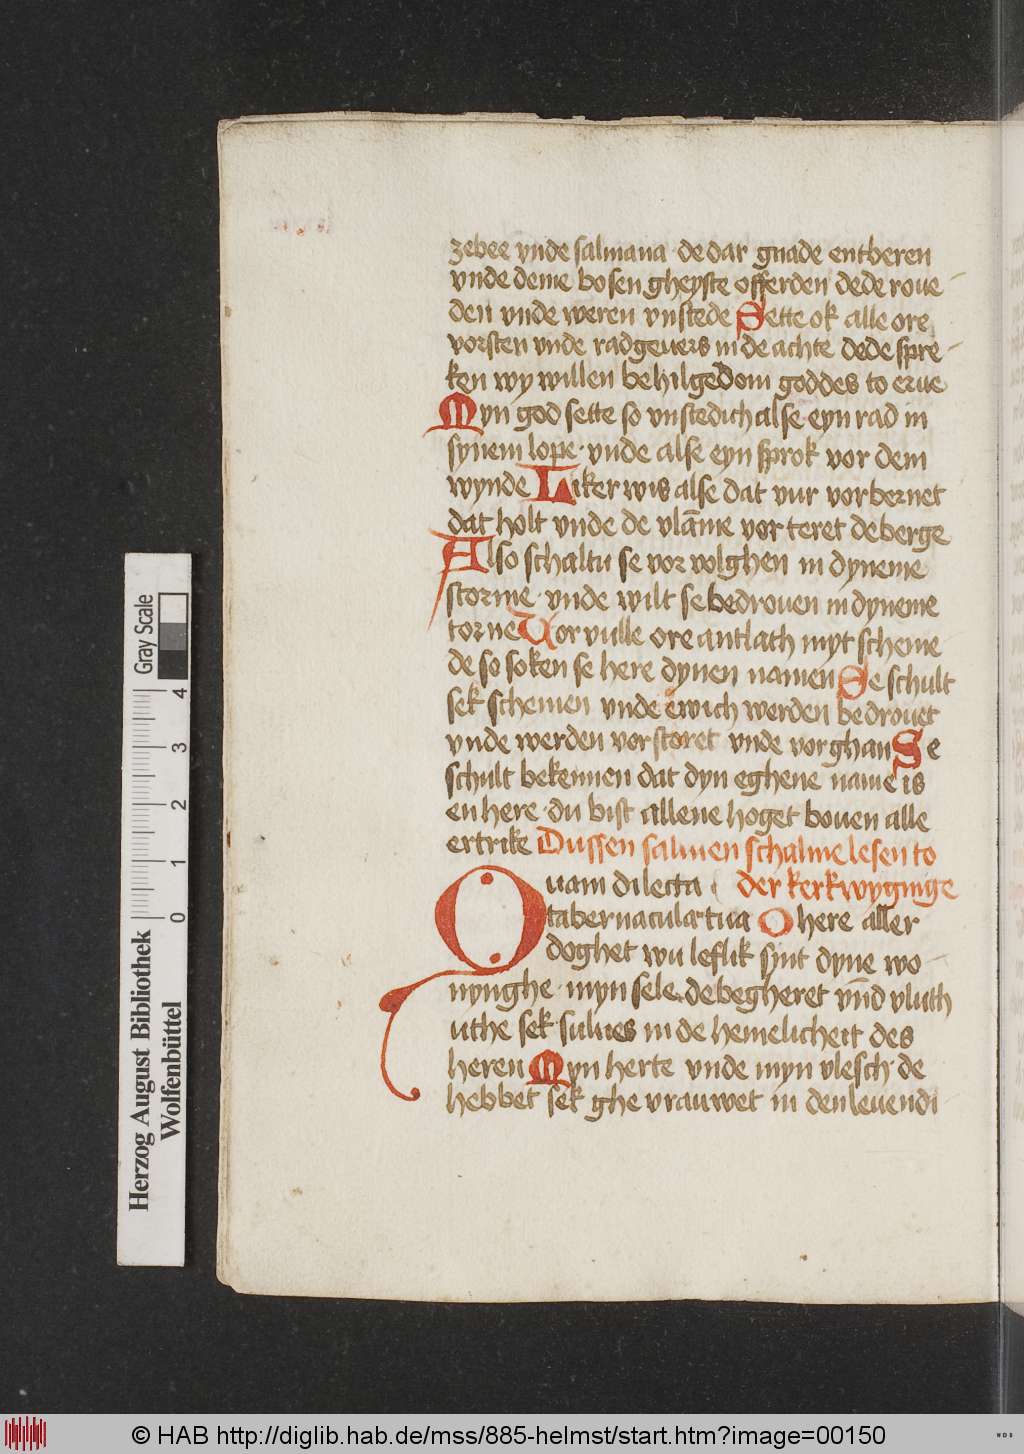 zebee vnde salmana · de dar gnade entberen
vnde deme bosen gheyste offerden dede roue-
den vnde weren vnstede Sette ok alle ore
vorsten vnde radgeuers in de achte dede spre-
ken wy willen behilgedom goddes to erue
Myn god sette so vnstedich alse eyn rad in
synem lope · vnde alse eyn sprok vor dem
wynde Liker wis alse dat vur vorbernet
dat holt vnde de vlāme vorteret de berge
Also schaltu se vor volghen in dyneme
storme · vnde wilt se bedrouen in dyneme
torne Vor vulle ore antlath myt scheme
de so soken se here dynen namen Se schult
sek schemen vnde ewich werden bedrouet
vnde werden vorstoret vnde vorghan Se
schult bekennen dat dyn eghene name is
en here · du bist allene hoget bouen alle
ertrike Dussen salmen schalme lesen to
der kerkwyginge
Quam dilecta
tabernacula tua O here aller
doghet wu leflik synt dyne wo-
nynghe · myn sele de begheret vn̄d vluth
uthe sek sulues in de hemelicheit des
heren Myn herte vnde myn vlesch · de
hebbet sek ghevrauwet in den leuendi
Gray Scale
4
3
2
1
0
Herzog August Bibliothek
Wolfenbüttel
© HAB http://diglib.hab.de/mss/885-helmst/start.htm?image=00150